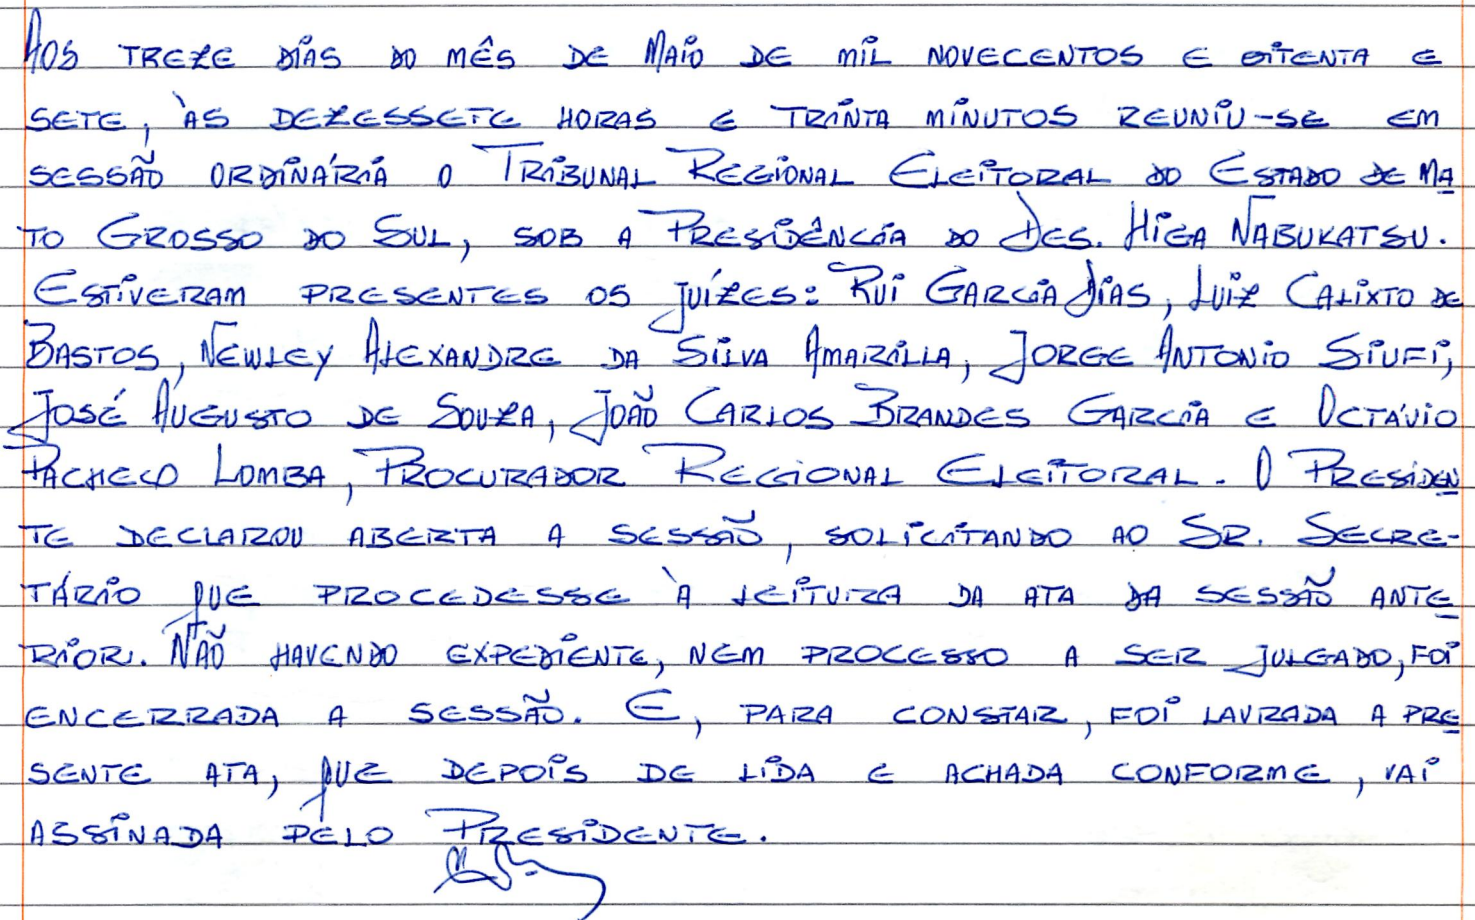 Aos treze dias do mês de Maio de mil novecentos e oitenta e
sete, às dezessete horas e trinta minutos reuniu-se em
sessão ordinária o Tribunal Regional Eleitoral do Estado de Ma
to Grosso do Sul, sob a Presidência do Des. Higa Nabukatsu.
Estiveram presentes os juízes: Rui Garcia Dias, Luiz Calixto de
Bastos, Newley Alexandre da Silva Amarilla, Jorge Antonio Siufi,
José Augusto de Souza, João Carlos Brandes Garcia e Octávio
Pacheco Lomba, Procurador Regional Eleitoral. O Presiden
te declarou aberta a sessão, solicitando ao Sr. Secre-
tário que procedesse à leitura da ata da sessão ante
rior. Não havendo expediente, nem processo a ser julgado, foi
encerrada a sessão. E, para constar, foi lavrada a pre
sente ata, que depois de lida e achada conforme, vai
assinada pelo Presidente.